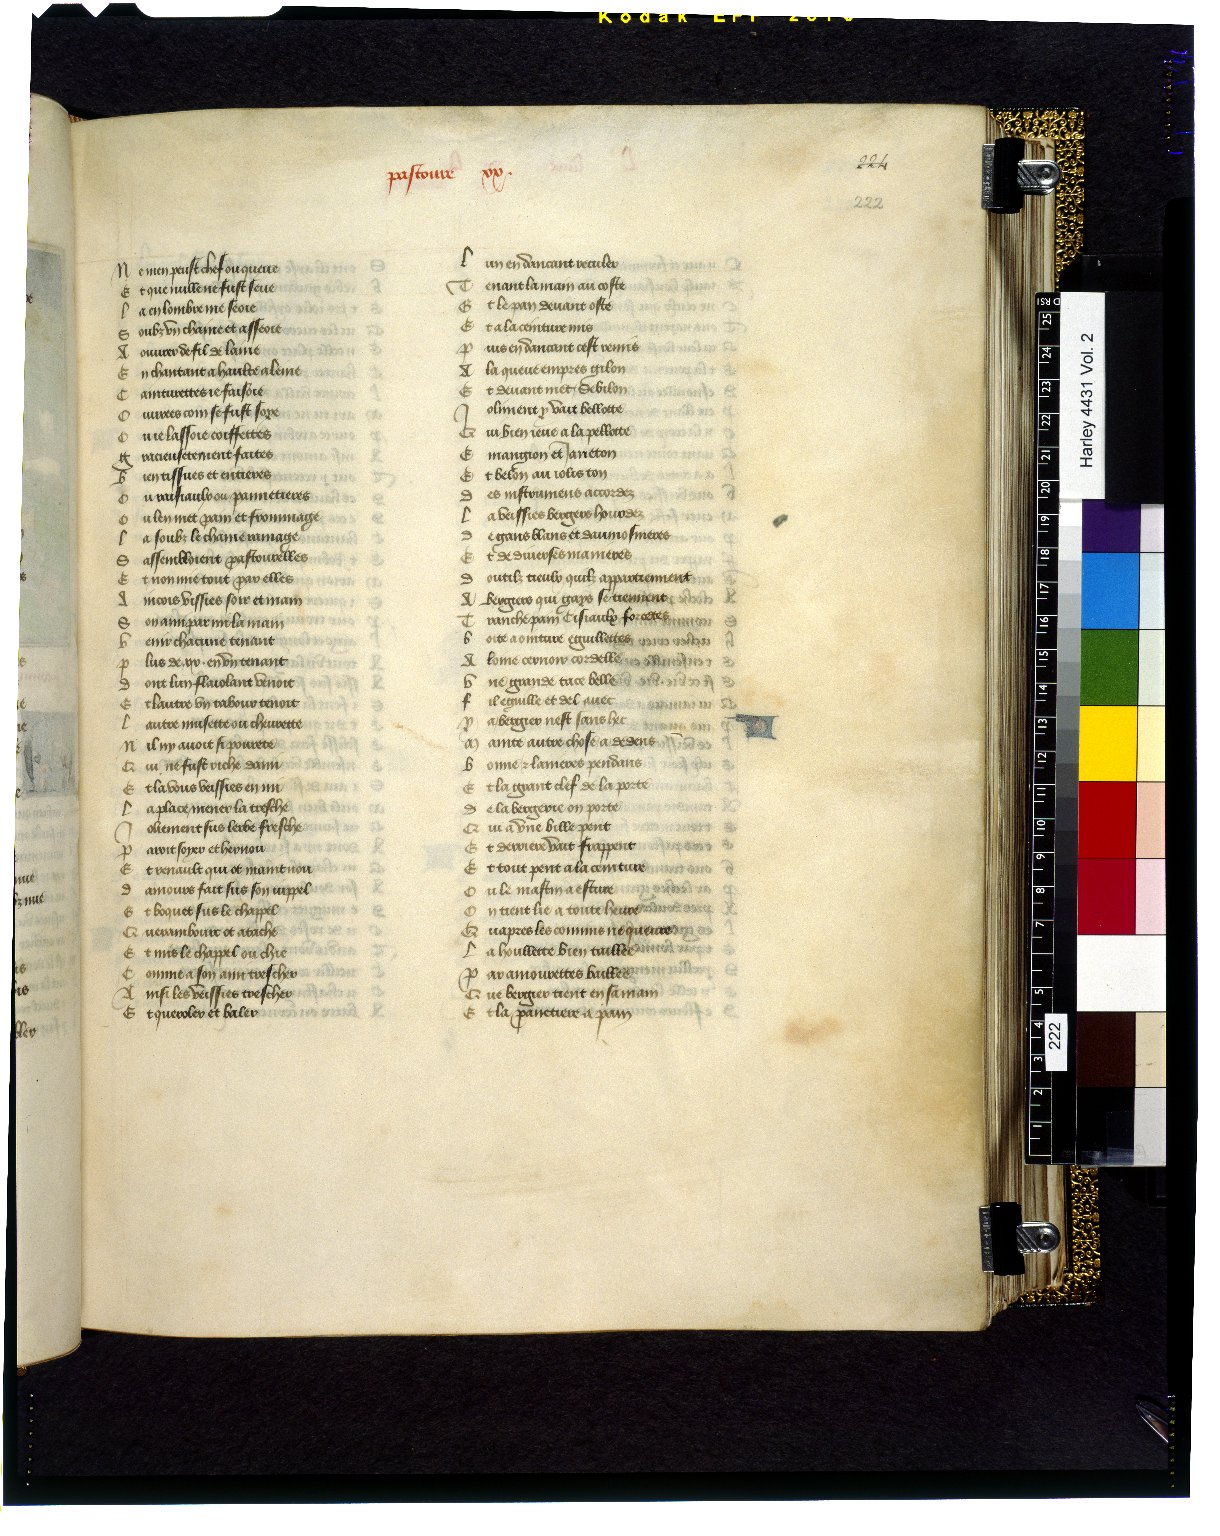 Kodak
pastoure xx.
224
222
N e men peust chef ou queue
E t que nulle ne fust seue
L a en lombre me seoie
S oubz vn chaine et asseoie
A ouurer de fil de laine
E n chantant a haulte alaine
C ainturettes ie faisoie
O uurees com se fust soye
O u ie lassoie coiffettes
G racieusetement faites
B ien tissues et entieres
O u raisiaulx ou pannetieres
O u len met pain et frommage
L a soubz le chaine ramage
S assembloient pastourelles
E t non mie tout par elles
A incois vissies soir et main
S on ami par mi la main
V enir chacune tenant
P lus de xx. en vn tenant
D ont lun flaiolant venoit
E t lautre vn tabour tenoit
L autre musette ou cheurette
N il ny auoit si pourete
Q ui ne fust riche dami
E t la vous veissies en mi
L a place mener la tresche
J oliement sus lerbe fresche
P arot soyer et hernou
E t renault qui ot maint nou
D amours fait sus son iuppel
E t boquet sus le chappel
Q ue rambour ot atache
E t mis le chappel ou chie
C omme a son ami treschier
A insi les veissies trescher
E t queroler et baler
L un en dancant reculer
T enant la main au coste
E t le pan deuant oste
E t a la ceinture mis
P uis en dancant cest remis
A la queue empres gilon
E t deuant met debilon
J oliment y vait bellotte
Q ui bien ieue a la pellotte
E mangion et Janeton
E t belon au iolis ton
D es instrumens accordez
L a veissies bergiers hourdez
D e gans blans et daumosnieres
E t de diuerses manieres
D outilz tieulx quilz appartiennent
A bergiers qui gays se tiennent
T ranche pain Cisiaulx forcetes
B oite a ointure eguillettes
A lome cernoir cordelle
V ne grande tace belle
F il eguille et del auec
Y a bergier nest sans hec
M ainte autre chose a dedens
B onne z lanieres pendans
E t la grant clef de la porte
D e la bergerie on porte
Q ui a vne bille pent
E t derriere vait frappent
E t tout pent a la ceinture
O u le mastin a esture
O n tient lie a toute heure
Q uapres les connins ne queure
L a houllette bien taillee
P ar amourettes baillee
Q ue bergier tient en sa main
E t la panetiere a pain
Harley 4431 Vol. 2
222
25
24
23
22
21
20
19
18
17
16
15
14
13
12
11
10
9
8
7
5
4
3
2
1